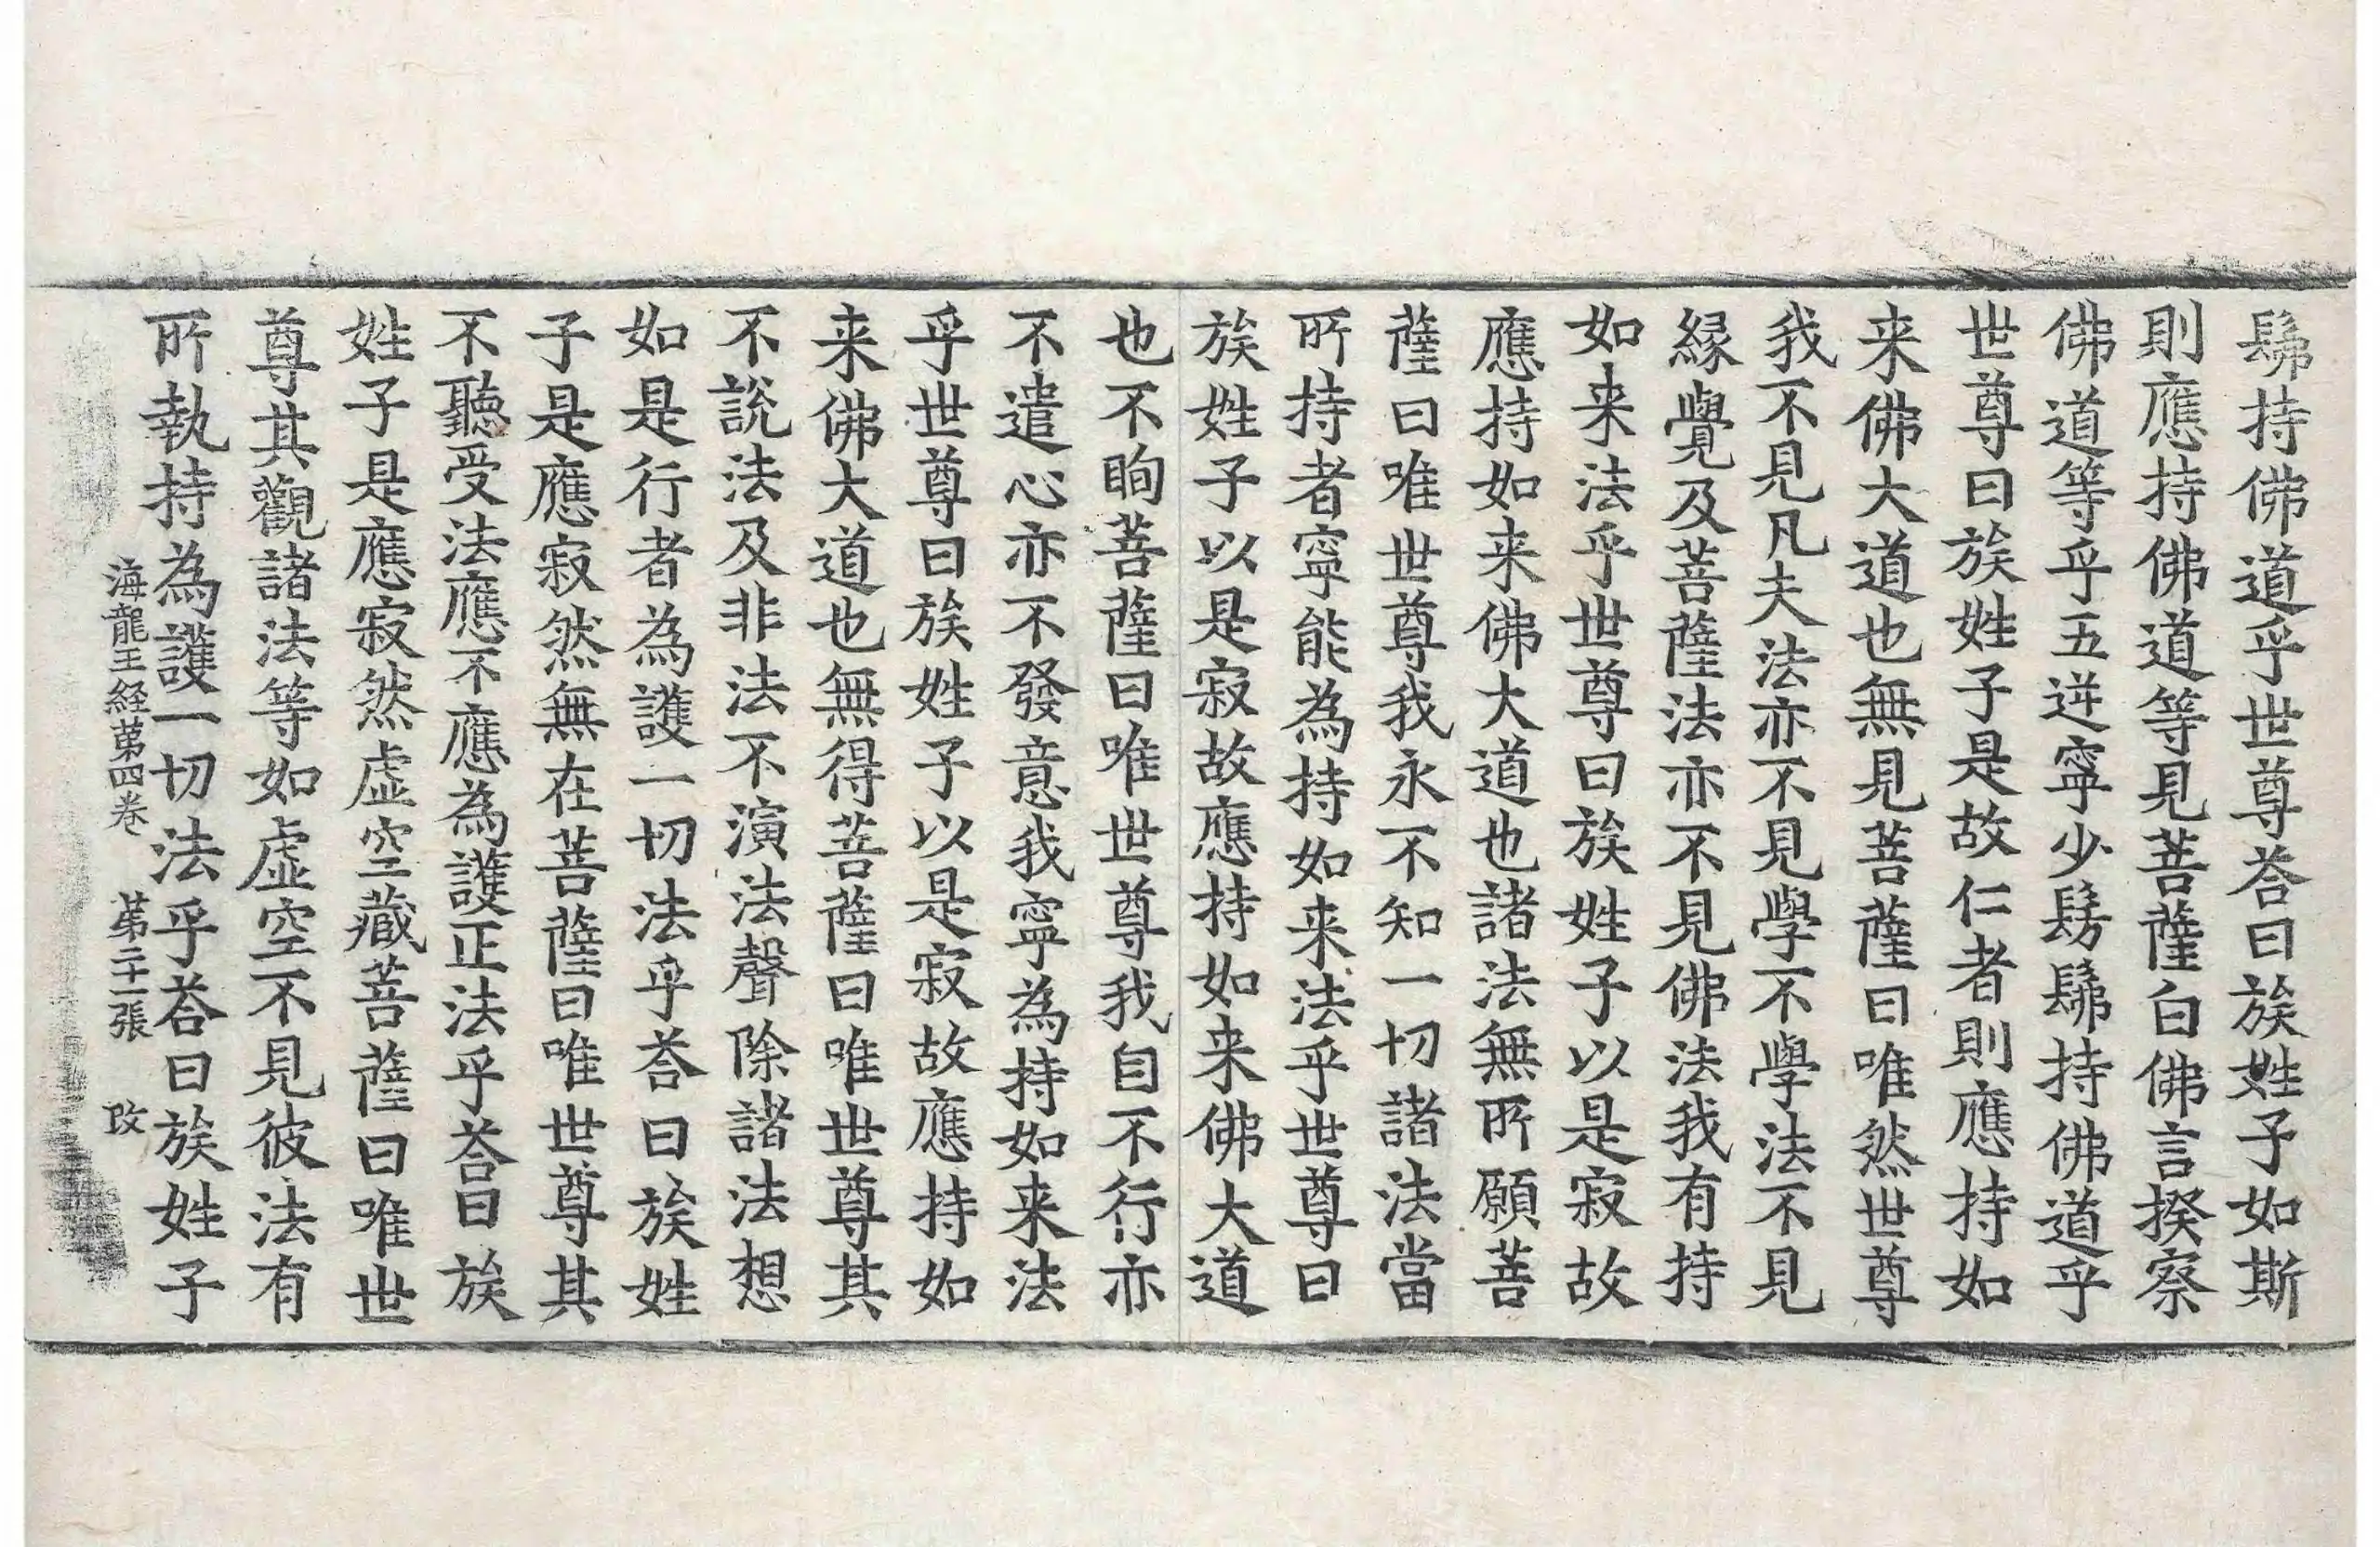 髴持佛道乎世尊荅曰族姓子如斯
則應持佛道等見菩薩白佛言揆察
佛道等乎五逆寧少髣髴持佛道乎
世尊曰族姓子是故仁者則應持如
来佛大道也無見菩薩曰唯然世尊
我不見凡夫法亦不見學不學法不見
緣覺及菩薩法亦不見佛法我有持
如来法乎世尊曰族姓子以是寂故
應持如来佛大道也諸法無所願菩
薩曰唯世尊我永不知一切諸法當
所持者寧能為持如来法乎世尊曰
族姓子以是寂故應持如来佛大道
也不眴菩薩曰唯世尊我自不行亦
不遣心亦不發意我寧為持如来法
乎世尊曰族姓子以是寂故應持如
来佛大道也無得菩薩曰唯世尊其
不說法及非法不演法聲除諸法想
如是行者為護一切法乎荅曰族姓
子是應寂然無在菩薩曰唯世尊其
不聽受法應不應為護正法乎荅曰族
姓子是應寂然虛空藏菩薩曰唯世
尊其觀諸法等如虛空不見彼法有
所執持為護一切法乎荅曰族姓子
海龍王経苐四卷 苐二十一張 攺